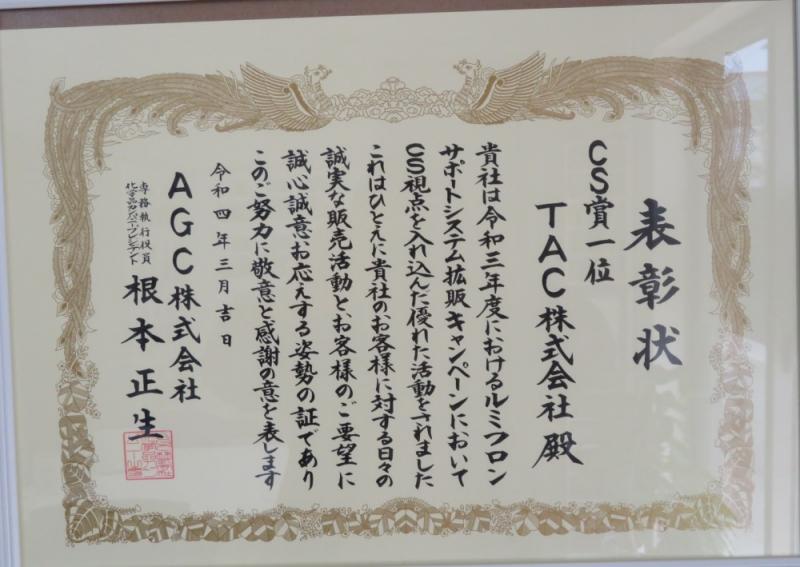 表彰状
CS賞一位
TAC株式会社 殿
貴社は令和三年度におけるルミフロン
サポートシステム拡販キャンペーンにおいて
CS視点を入れ込んだ優れた活動をされました
これはひとえに貴社のお客様に対する日々の
誠実な販売活動とお客様のご要望に
誠心誠意お応えする姿勢の証であり
このご努力に敬意と感謝の意を表します
令和四年三月吉日
AGC株式会社
専務執行役員
化学品カンパニープレジデント
根本正生